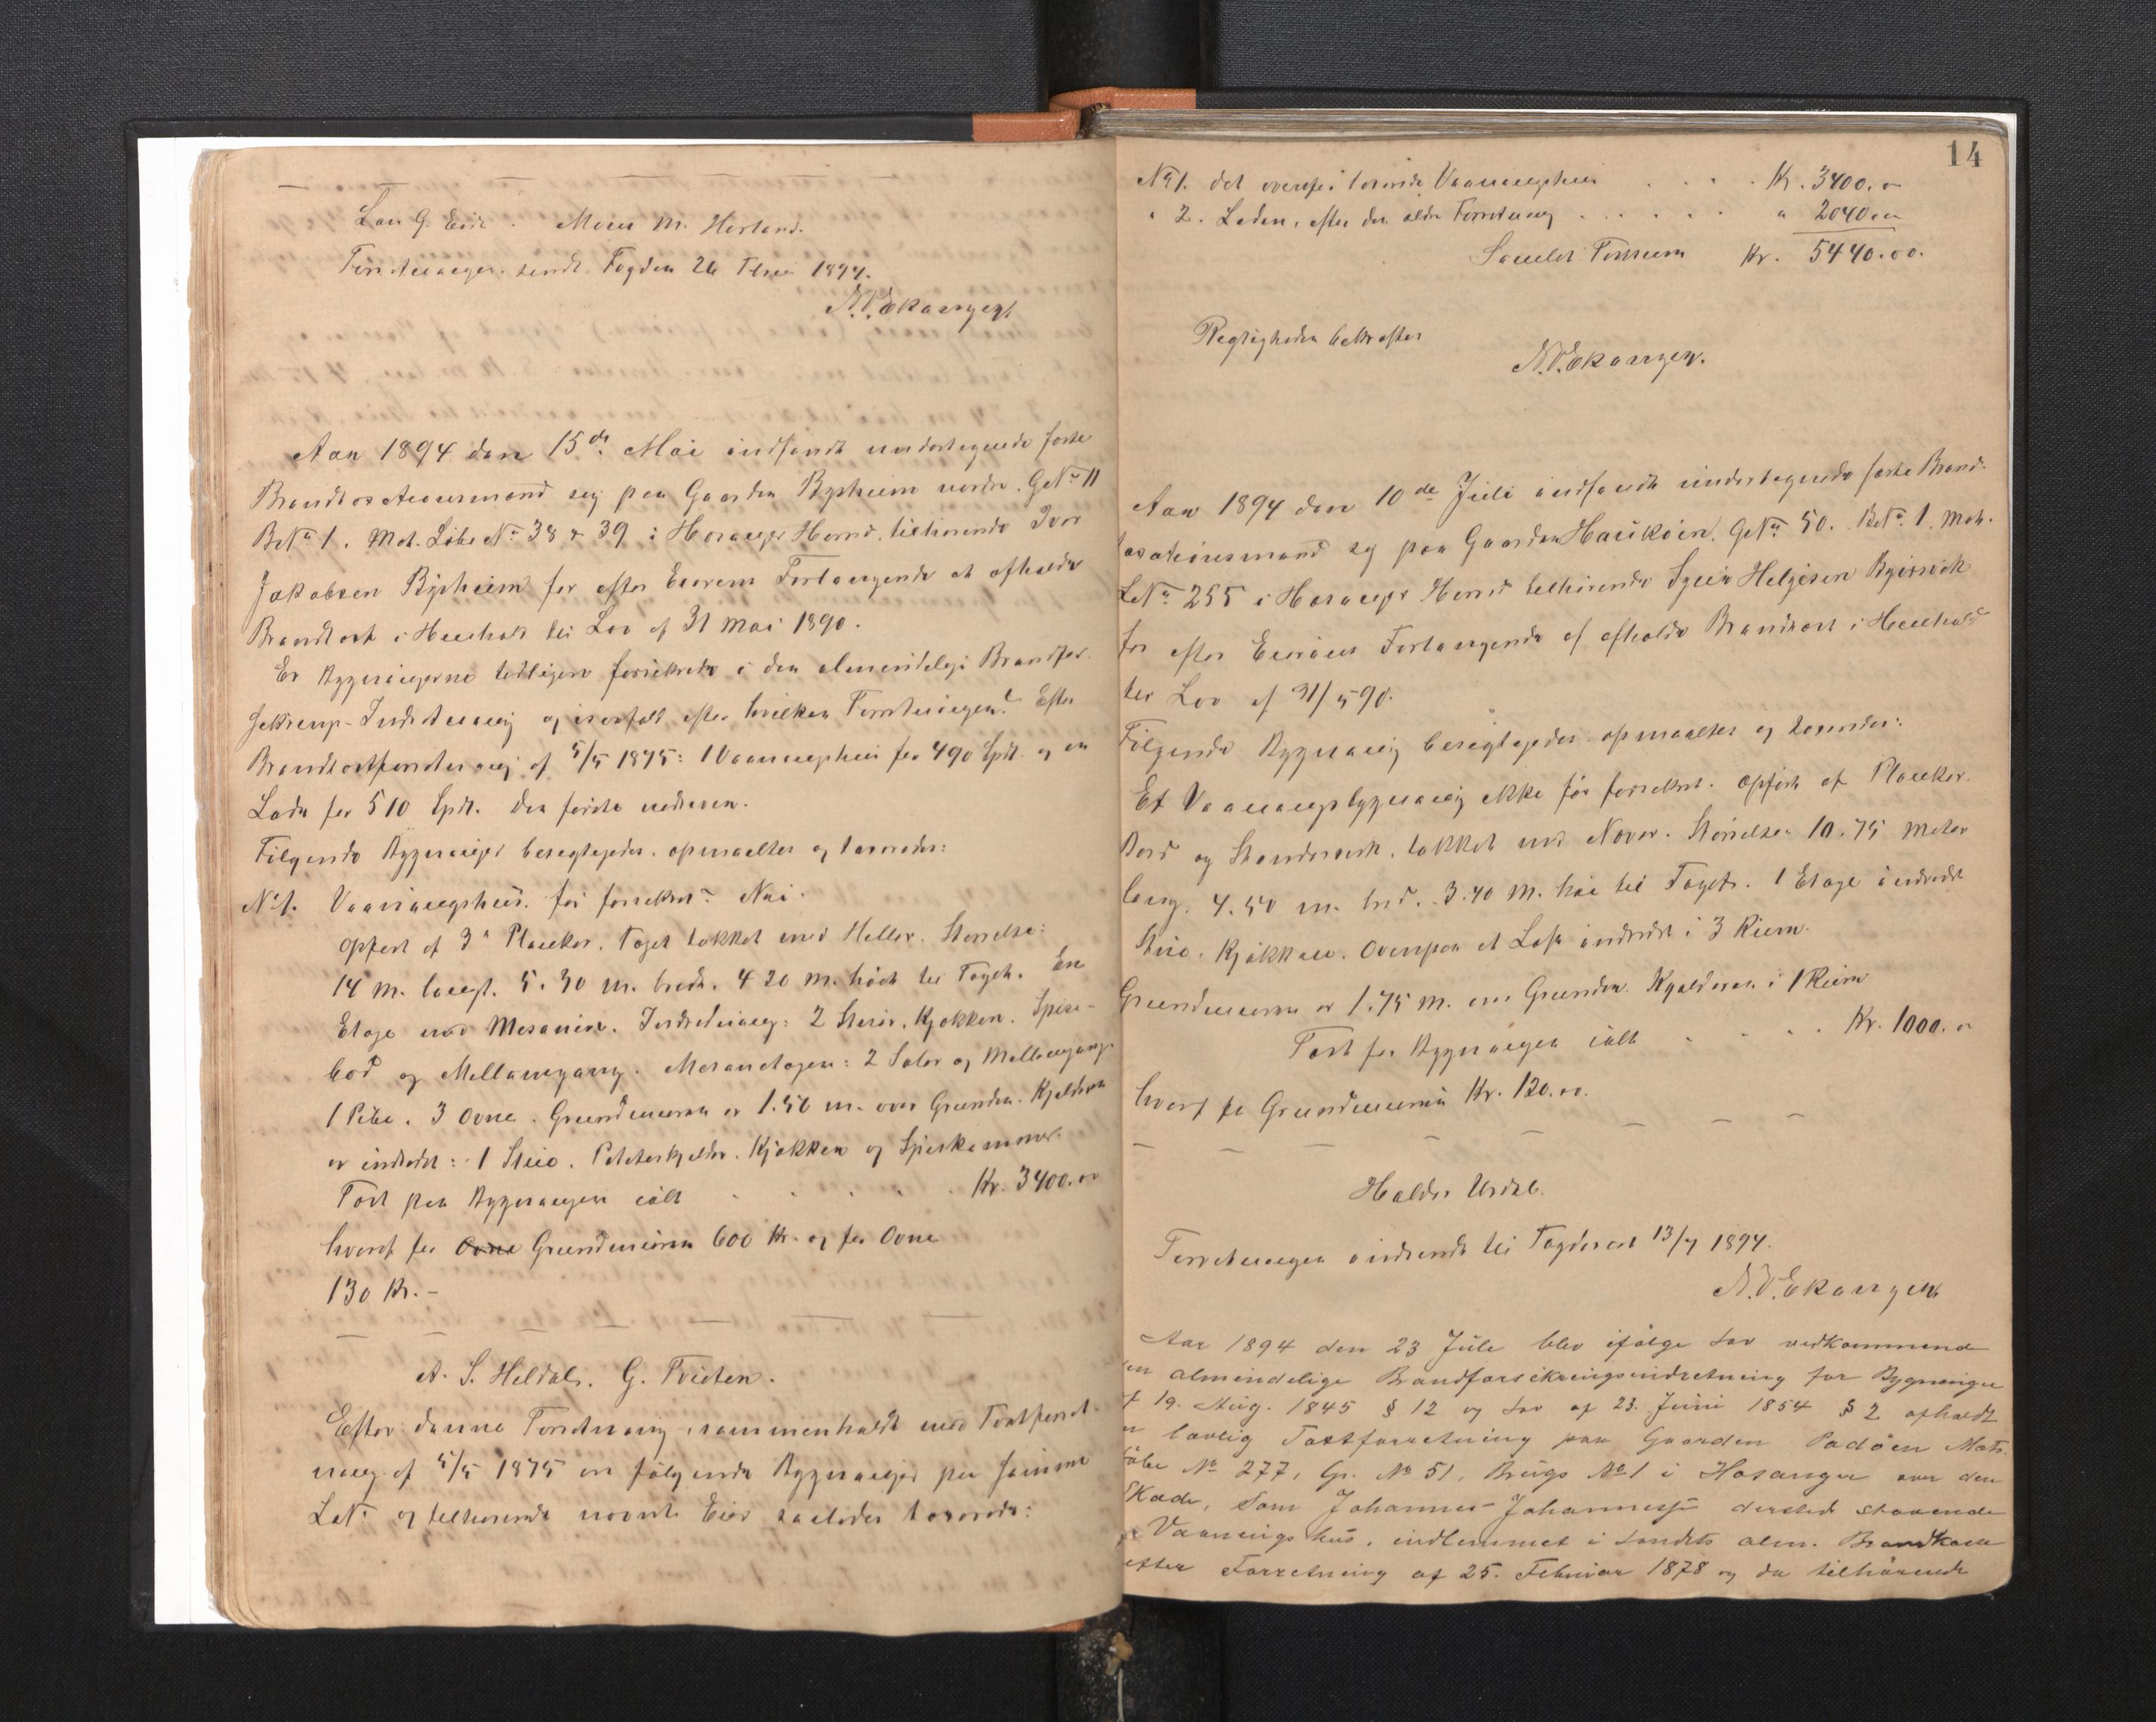 Lau G. Eide. Mons M. Herland.
Forretningen sendt Fogden 26 1894.
N. V. Ekanger
Aar 1894 den 15de Mai indfandt undertegnede faste
Brandtaxationsmænd sig paa Gaarden Bysheim nordre. G.No 11
B.No 1. Mat. Løbe No 38 & 39 i Hosanger Herred, tilhørende Ivar
Jakobsen Bysheim for efter Eierens Forlangende at afholde
Brandtaxt i Henhold til Lov af 31 Mai 1890.
Er Bygningerne tidligere forsikrede i den almindelige Brandfor-
sikrings-Indretning og isaafald efter hvilken Forretningen? Efter
Brandtaxtforretning af 5/5 1875: 1 Vaaningshus for 490 Spd. og en
Lade for 510 Spd. Den første nedreven.
Følgende Bygninger besigtigedes, opmaaltes og taxeredes:
No 1. Vaaningshus. før forsikret? Nei.
Opført af 3" Planker. Taget tækket med Heller. Størrelse:
14 m. langt. 5.30 m. bredt. 4 20 m. høit til Taget. En
Etage med Mesanin. Indredning: 2 Stuer, Kjøkken. Spise-
bod og Mellemgang. Mesanetagen: 2 Saler og Mellemgang.
1 Pibe. 3 Ovne. Grundmuren er 1.50 m. over Grunden. Kjelderen
er indredet: 1 Stue. Poteteskjelder. Kjøkken og Spiskammer.
Taxt paa Bygningen ialt . . . . . Kr. 3400.00
hvoraf for Ovne Grundmuren 600 Kr. og for Ovne
130 Kr. –
A. S. Heldal. G. Tveiten.
Efter denne Forretning, sammenholdt med Taxtforret-
ning af 5/5 1875 er følgende Bygninger paa samme
L.No og tilhørende nævnte Eier saaledes taxerede:
14
No 1. det ovenfor taxerede Vaaningshus . . . . Kr. 3400.00
" 2. Laden, efter den ældre Forretning . . . . . . " 2040.00
Samlet Taxtsum Kr. 5440.00.
Rigtigheden bekræfter
N. V. Ekanger.
Aar 1894 den 10de Juli indfandt undertegnede faste Brand-
taxationsmænd sig paa Gaarden Haukøen. G.No 50. B.No 1. Mat.
L.No 255 i Hosanger Herred tilhørende Helgesen
for efter Eierens Forlangende at afholde Brandtaxt i Henhold
til Lov af 31/5 90.
Følgende Bygning besigtigedes, opmaaltes og taxeredes:
Et Vaaningsbygning ikke før forsikret. Opført af Planker.
Bord og Standerverk, tækket med Never. Størrelse 10.75 Meter
lang. 4.50 m. bred. 3.40 m. høi til Taget. 1 Etage indredet
Stue. Kjøkken. Ovenpaa et Loft indredet i 3 Rum.
Grundmuren er 1.75 m. over Grunden. Kjelderen i 1 Rum
Taxt for Bygningen ialt . . . . Kr. 1000.00
hvoraf for Grundmuren Kr. 120.00.
Halder Urdal.
Forretningen indsendt til Fogderiet 13/7 1894.
N. V. Ekanger
Aar 1894 den 23 Jule blev ifølge Lov vedkommende
en almindelige Brandforsikringsindretning for Bygninger
f 19. Aug. 1845 § 12 og Lov af 23. Juni 1854 § 2 afholdt
n lovlig Taxtforretning paa Gaarden Padøen Matr.
Løbe No 277, Gr. No 51, Brugs No 1 i Hosanger over den
Skade, som Johannes Johannesen dersteds staaende
Vaaningshus, indlemmet i Landets alm. Brandkasse
efter Forretning af 25. Februar 1878 og da tilhørende